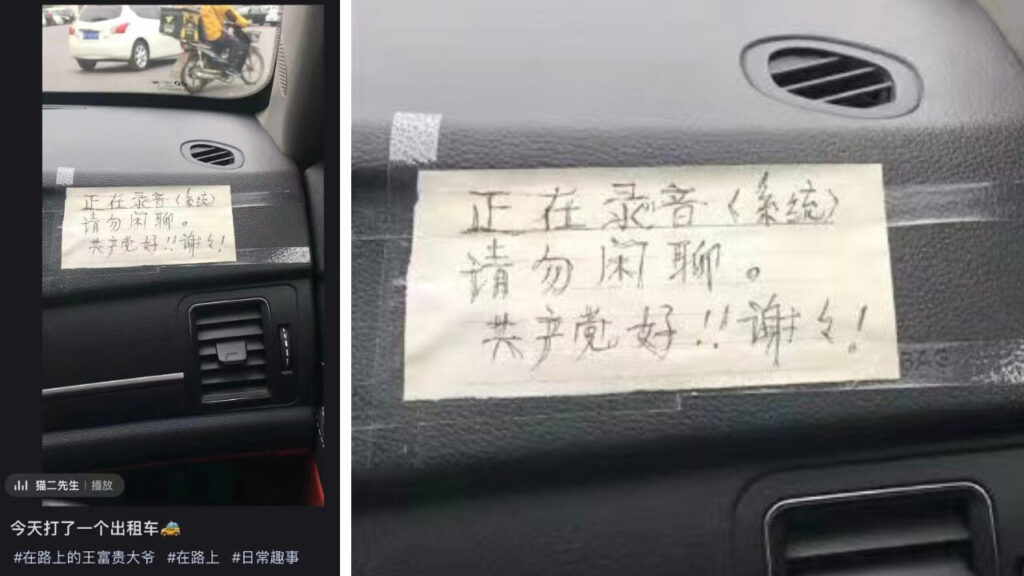 正在录音(系统)
请勿闲聊。
共产党好!!谢々!
猫二先生 | 播放
今天打了一个出租车🚕
#在路上的王富贵大爷 #在路上 #日常趣事
正在录音(系统)
请勿闲聊。
共产党好!!谢々!